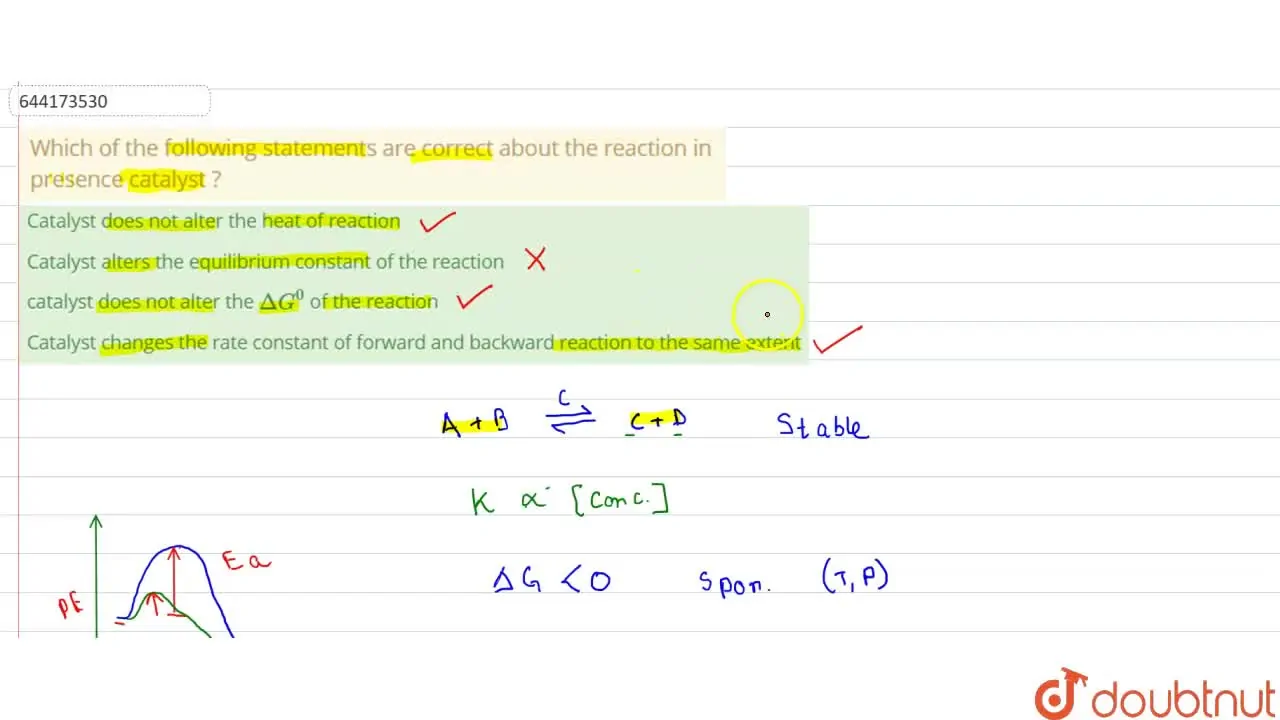 644173530
Which of the following statements are correct about the reaction in
presence catalyst ?
Catalyst does not alter the heat of reaction
Catalyst alters the equilibrium constant of the reaction
catalyst does not alter the ΔG⁰ of the reaction
Catalyst changes the rate constant of forward and backward reaction to the same extent
A + B ⇌ C + D Stable
C
K ∝ [Conc.]
Ea
ΔG < 0 Spon. (T, P)
PE
doubtnut